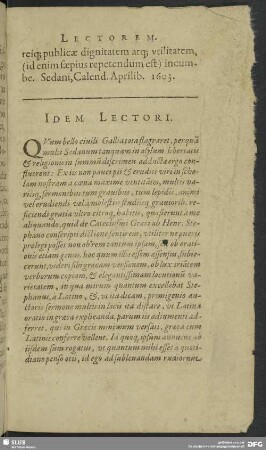 LECTOREM.
reiq; publicæ dignitatem atq; vtilitatem,
(id enim sæpius repetendum est) incum-
be. Sedani, Calend. Aprilib. 1603.
IDEM LECTORI.
QVum bello ciuili Gallia tota flagraret, perquā
multi Sedanum tanquam in asylum libertatis
& religionis in summū discrimen adductæ ergo con-
fluxerunt: Ex iis non pauci pii & eruditi viri in scho-
lam nostram a cœna maxime ventitabo, multis va-
riisq; sermonibus tum grauibus, tum lepidis, animi
vel erudiendi vel à molestis studiisq; grauiorib. re-
ficiendi gratia vltro citroq; habitis, quæsierunt a me
aliquando, quid de Catechismi Græci ab Henr. Ste-
phano conscripti dictione sentirem, vtiliter ne pueris
prælegi posset non ob rem tantum ipsam, sed ob oratio-
nis etiam genus. hoc quum illis essem assensus, subie-
cerunt, videri sibi græcam versionem, ob luxuriātem
verborum copiam, & elegantissimam locutionū va-
rietatem, in qua mirum quantum excellebat Ste-
phanus, a Latino, &, vt ita dicam, primigenio auc-
toris sermone multis in locis ita distare, vt Latina
oratio in græca explicanda, parum iis adiumenti ad-
ferret, qui in Græcis minimum versati, græca cum
Latinis conferre vellent. Id quoq; ipsum annuens ab
iisdem sum rogatus, vt quantum mihi esset a quoti-
diano penso otii, id ego ad subleuandam
SLUB